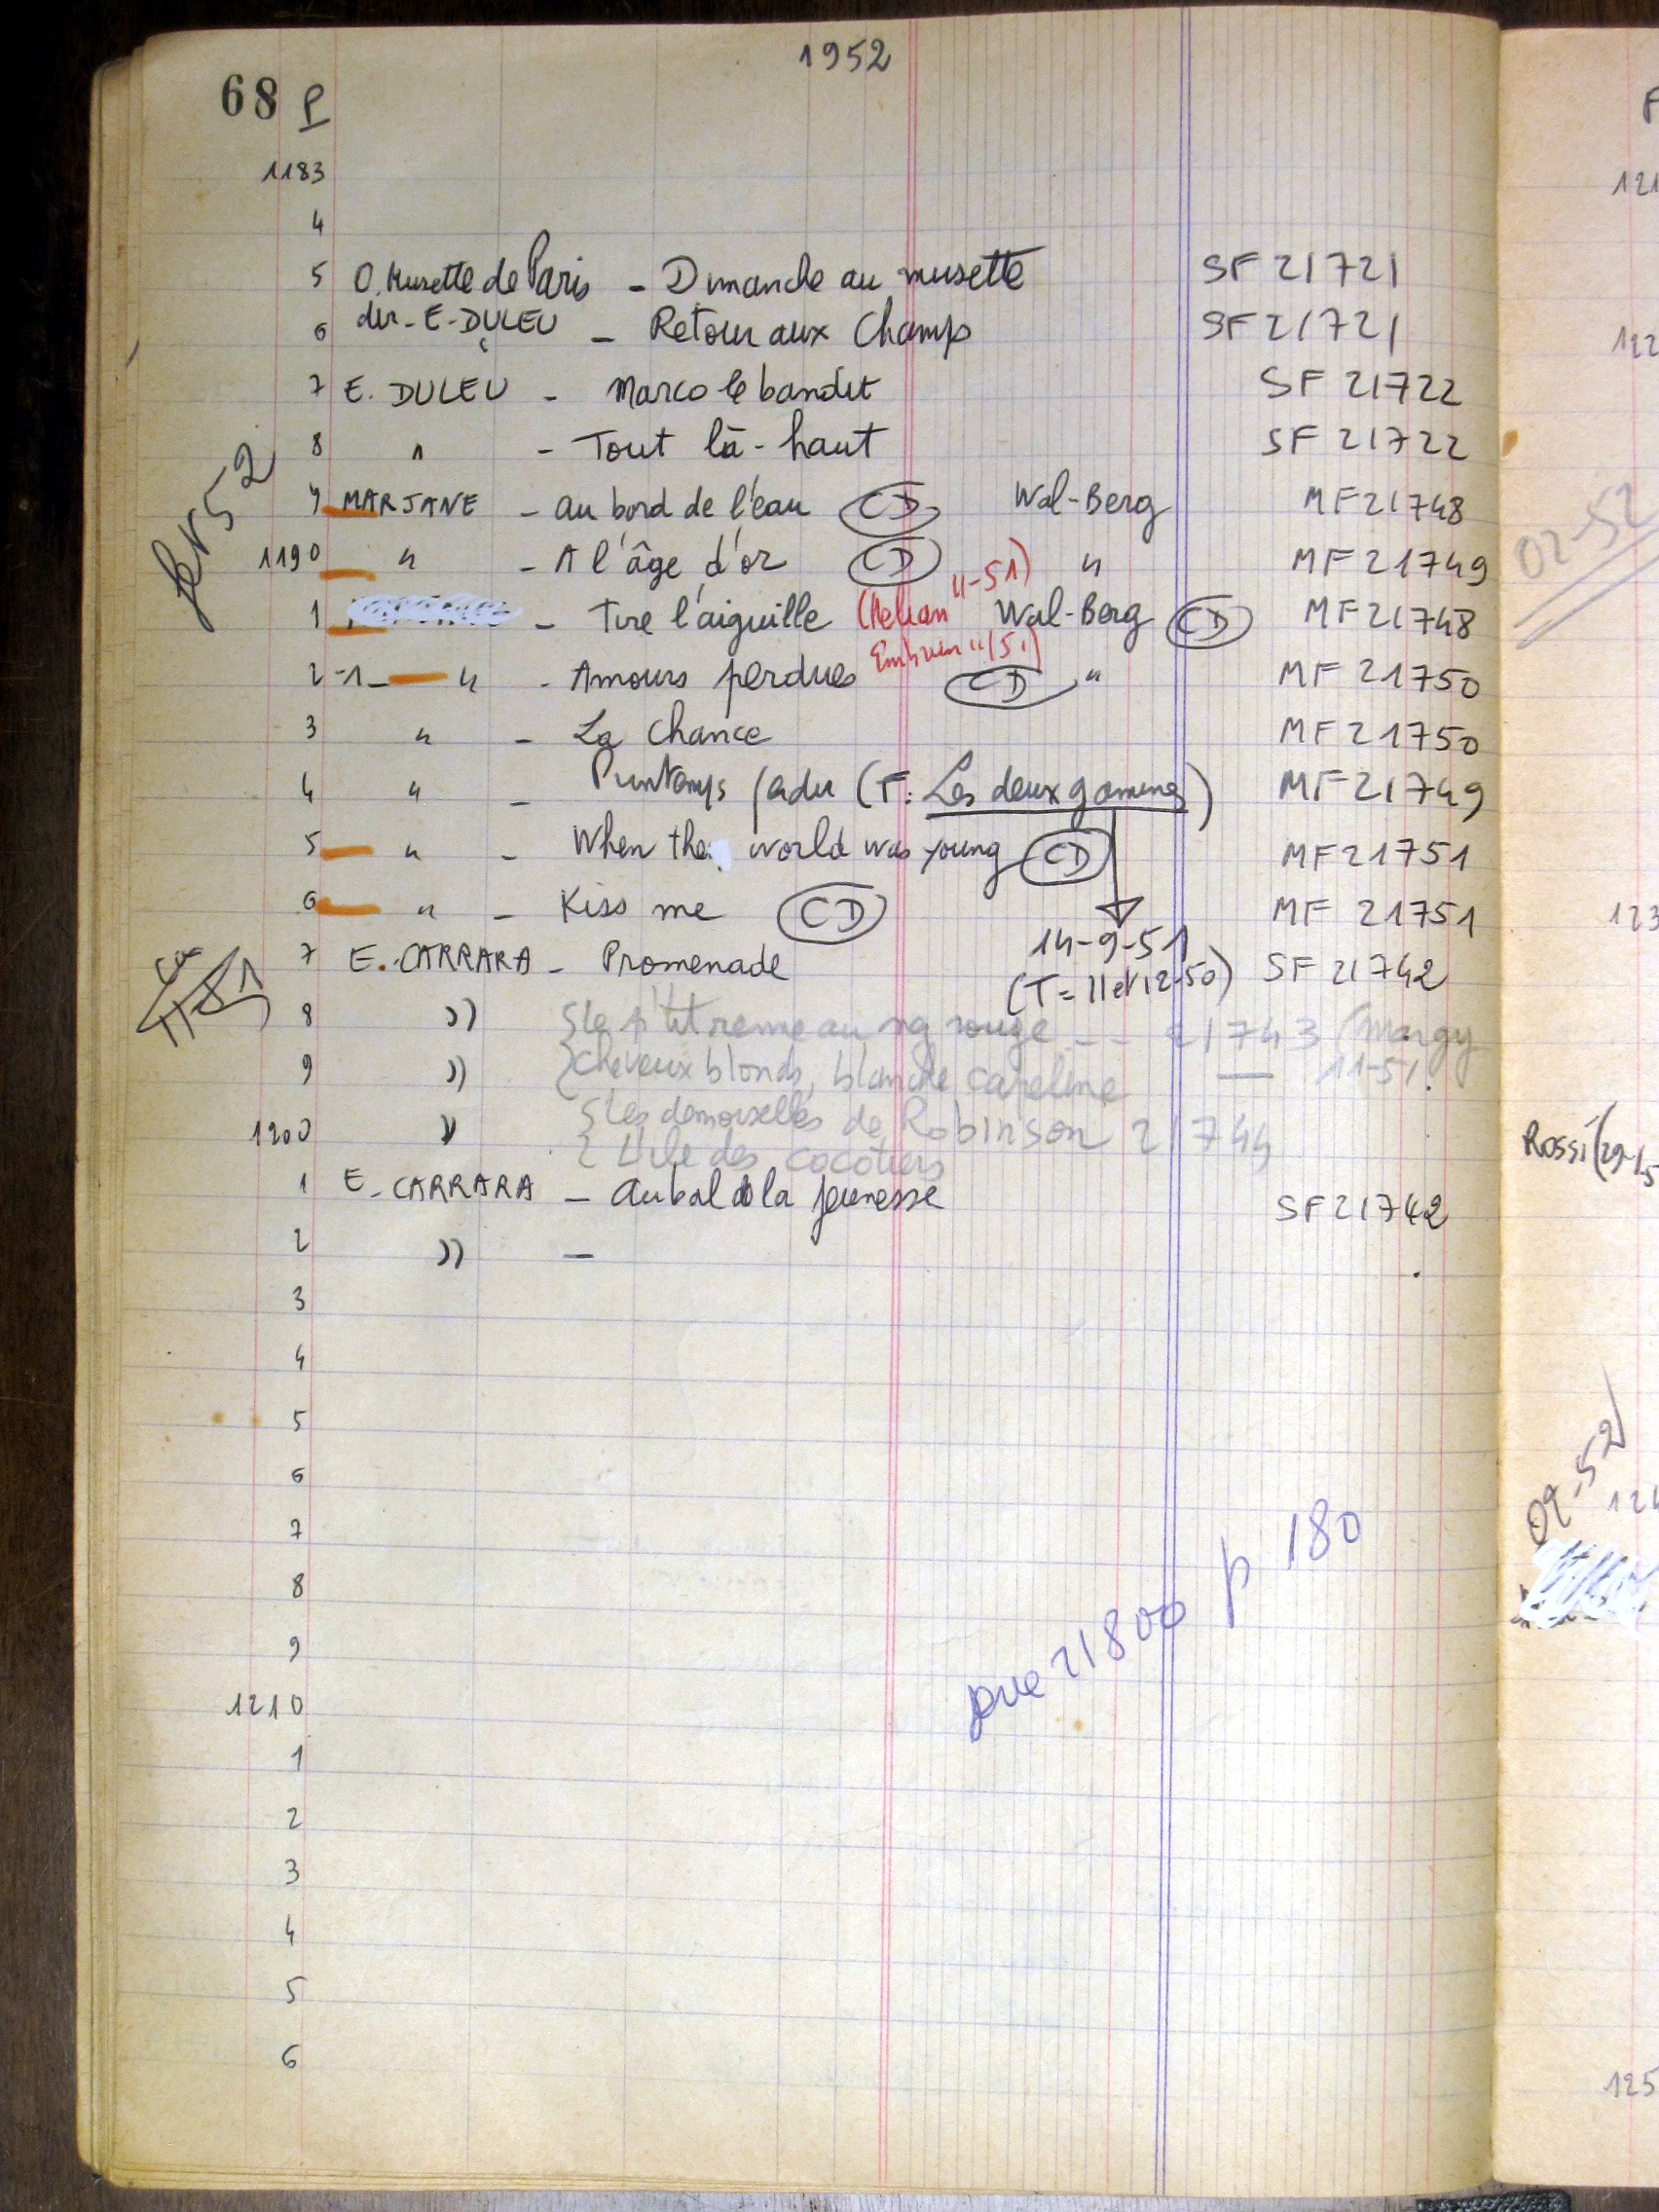 1952
68 P
1183
4
5 O. Musette de Paris - Dimanche au musette SF 21721
6 dir. E. DULEU - Retour aux Champs SF 21721
7 E. DULEU - Marco le bandit SF 21722
8 " - Tout là-haut SF 21722
Fév 52
9 MARJANE - au bord de l'eau CD Wal-Berg MF 21748
1190 " - A l'âge d'or CD " MF 21749
1 - Tire l'aiguille (Hélian 11-51) Wal-Berg CD MF 21748
2 -1- " - Amours perdues 11/51) CD " MF 21750
3 " - La Chance MF 21750
4 " - Printemps perdu (F: Les deux gamines) MF 21749
5 " - When the world was young CD MF 21751
6 " - Kiss me CD MF 21751
14-9-51
(T = 11 et 12-50)
7 E. CARRARA - Promenade SF 21742
11-51
8 " Le p'tit renne au nez rouge -- 21743 / Margy
9 " Cheveux blonds, blanche capeline — 11-51.
1200 " Les demoiselles de Robinson 21744
L'île des cocotiers
1 E. CARRARA - Au bal de la jeunesse SF 21742
2 " -
3
4
5
6
7
8
9
1210
1
2
3
4
5
6
21800 p 180
02-52
Rossi (29-1-5
09-52